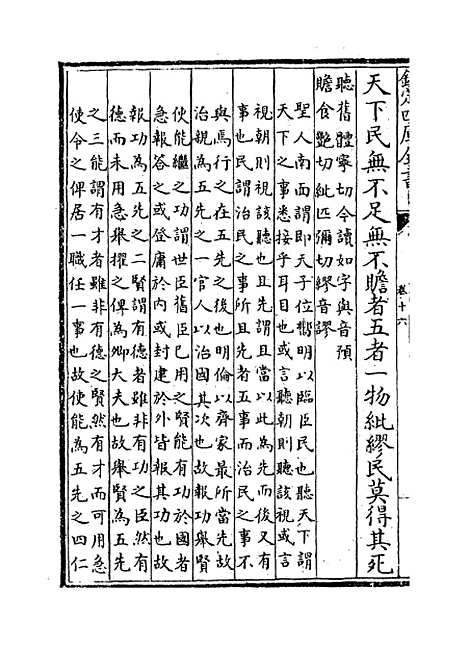 欽定四庫全書
卷十六
天下民無不足無不贍者五者一物紕繆民莫得其死
聽舊體寧切今讀如字與音預
贍食艷切紕匹彌切繆音謬
聖人南面謂即天子位嚮明以臨臣民也聽天下謂
天下之事悉接乎耳目也或言聽朝則聽該視或言
視朝則視該聽也且先謂且當以此為先而後又有
事也民謂治民之事所且先者五事而治民之事不
與焉行之在五先之後也明倫以齊家最所當先故
治親為五先之一官人以治國其次也故報功舉賢
使能繼之功謂世臣舊臣已用之賢能有功於國者
急報答之或登庸於內或封建於外皆報其功也故
報功為五先之二賢謂有德者雖非有功之臣然有
德而未用急舉擢之俾為卿大夫也故舉賢為五先
之三能謂有才者雖非有德之賢然有才而可用急
使令之俾居一職任一事也故使能為五先之四仁